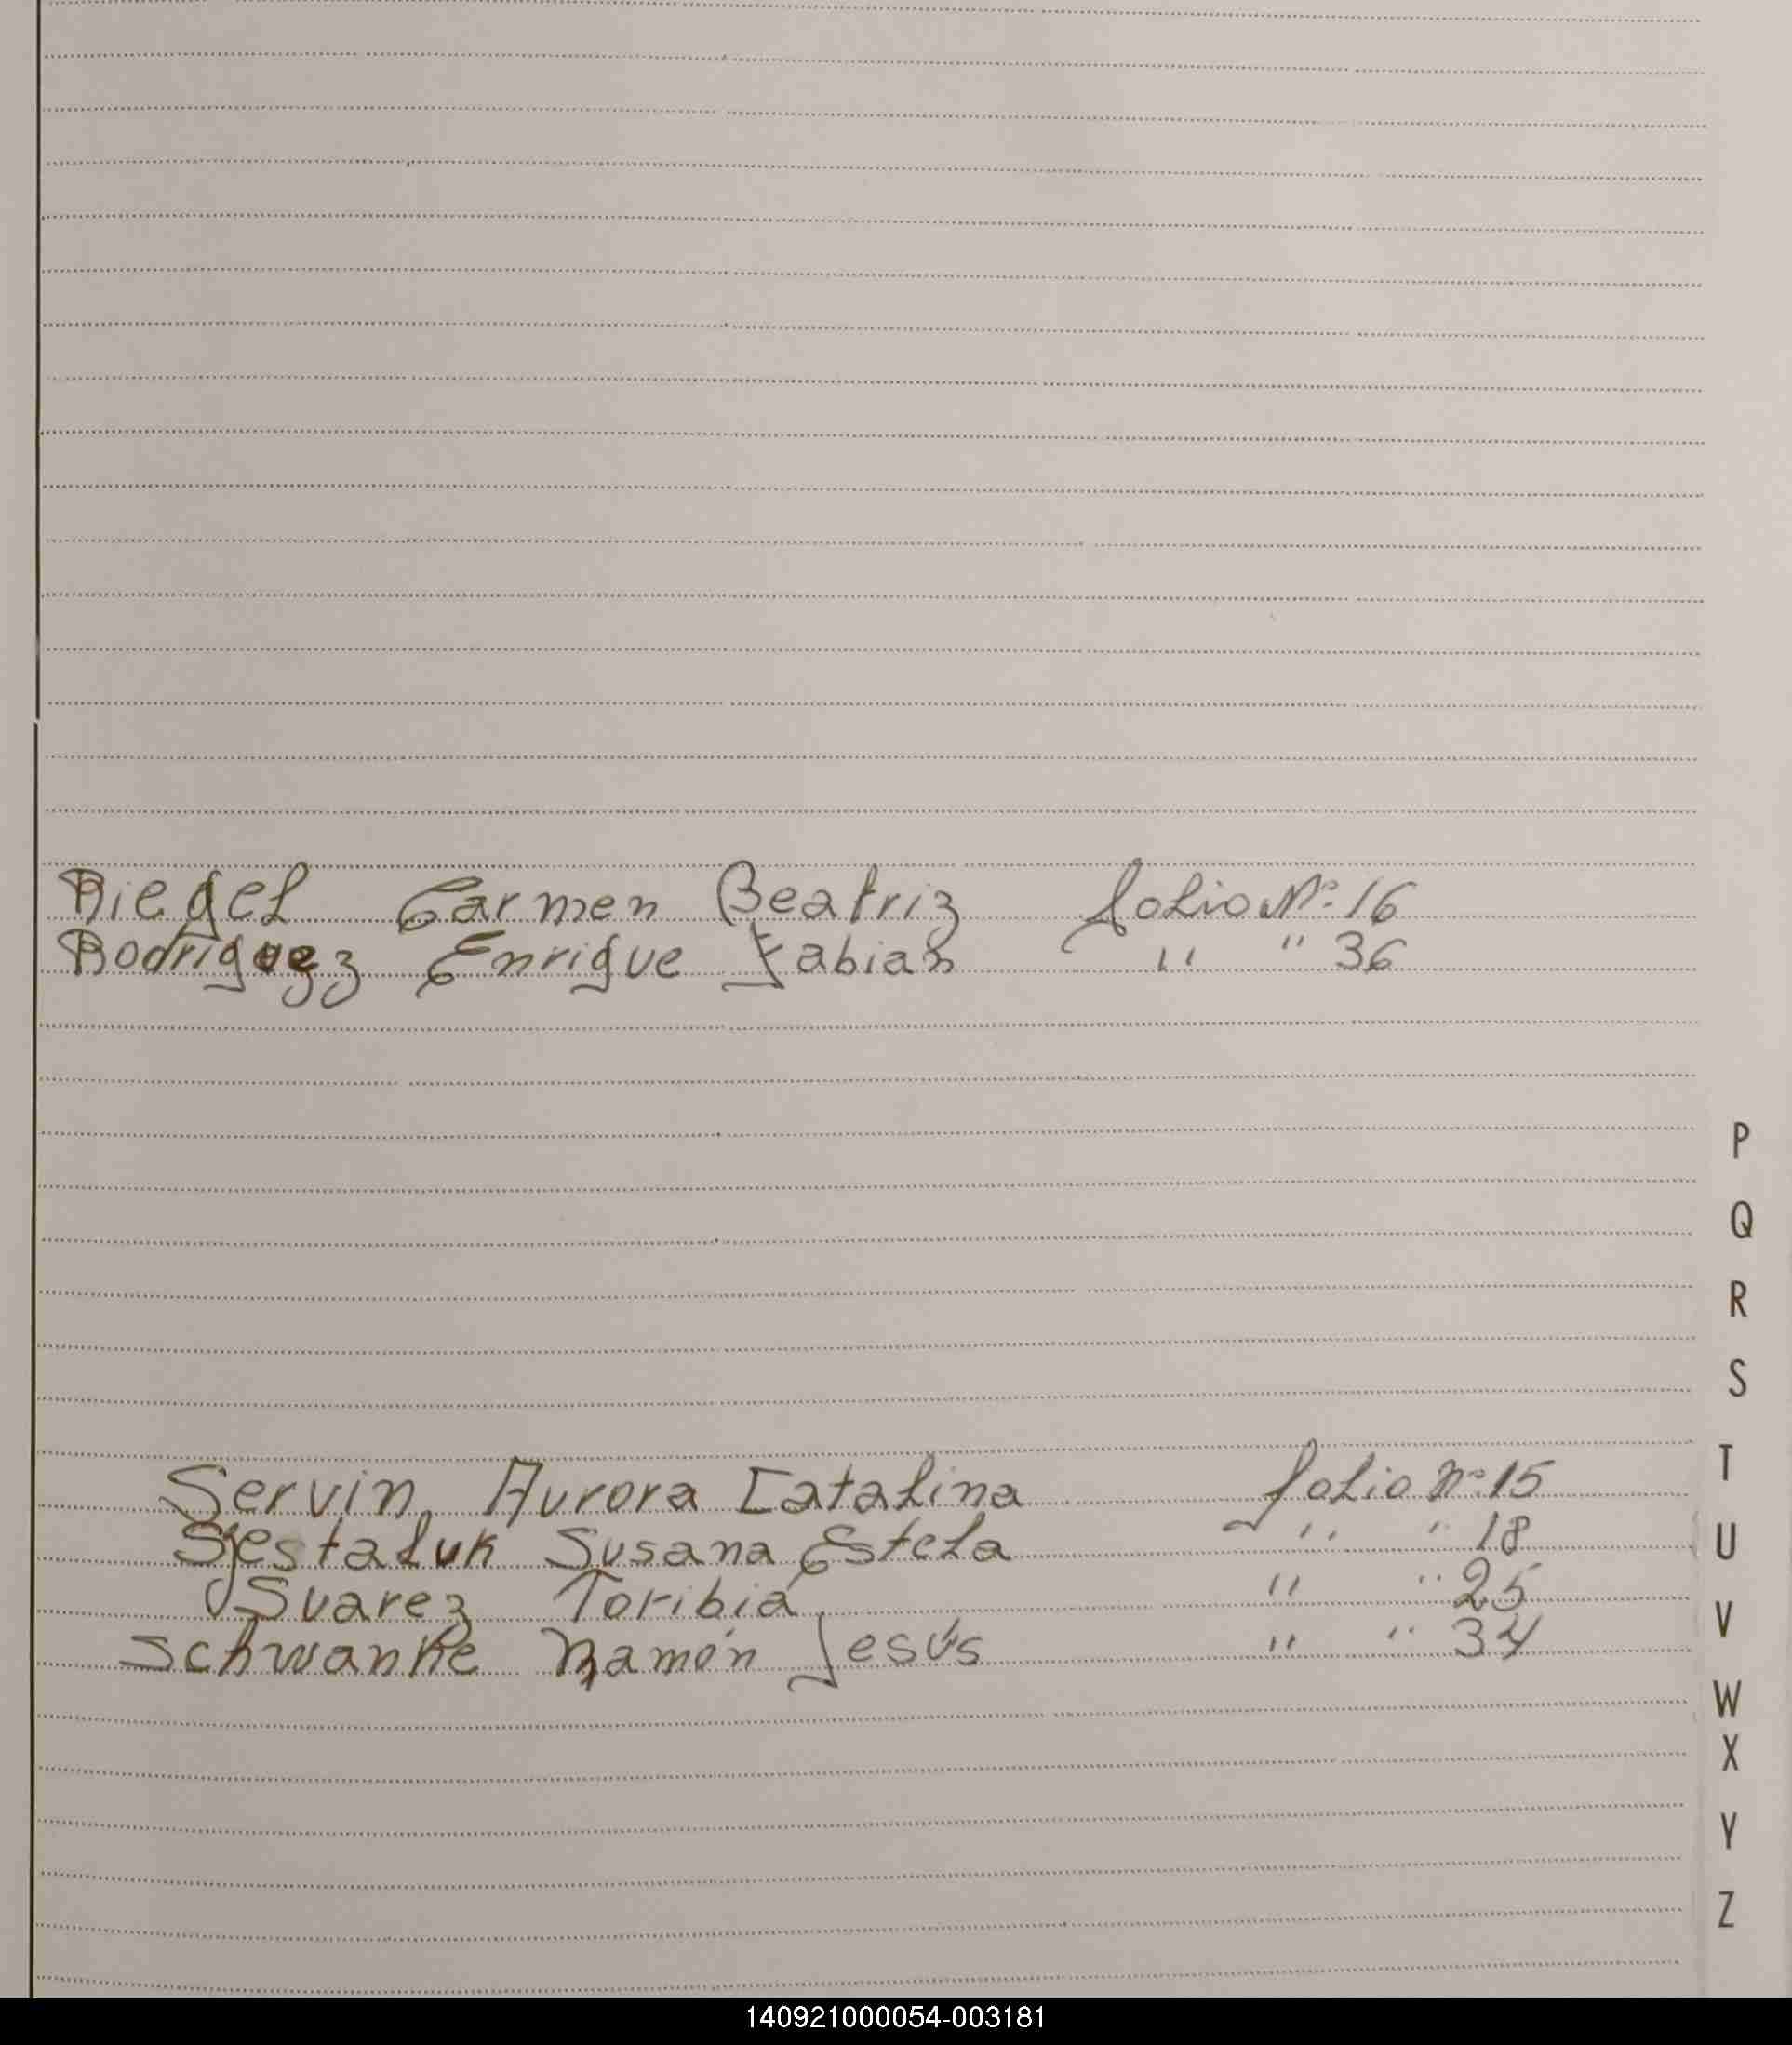 Riegel Carmen Beatriz folio Nº 16
Rodriguez Enrique Fabian " " 36
P
Q
R
S
Servin, Aurora Catalina folio Nº 15
T
Sjestaluk Susana Estela " " 18
U
Suarez Toribia " " 25
V
Schwanke Ramón Jesús " " 34
W
X
Y
Z
140921000054-003181